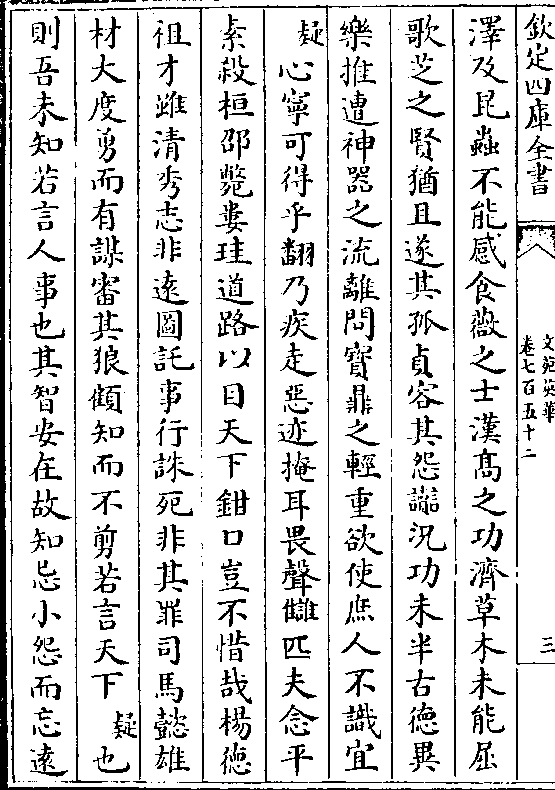 欽定四庫全書
文苑英華
卷七百五十二
三
澤及昆蟲不能感食薇之士漢髙之功濟草木未能屈
歌芝之賢猶且遂其孤貞容其怨讟況功未半古德異
樂推遭神器之流離問寶鼎之輕重欲使庶人不議宜
疑心寧可得乎翻乃疾走惡迹掩耳畏聲讎匹夫念平
素殺桓邵斃婁珪道路以目天下鉗口豈不惜哉楊德
祖才雖清秀志非遠圖託事行誅死非其罪司馬懿雄
材大度勇而有謀審其狼顧知而不剪若言天下疑也
則吾未知若言人事也其智安在故知忌小怨而忘遠